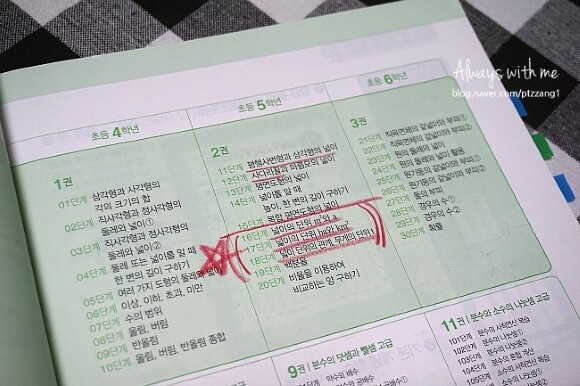 Always with me
blog.naver.com/ptzzang1
초등 4학년
1권
01단계 삼각형과 사각형의
각의 크기의 합
02단계 직사각형과 정사각형의
둘레와 넓이①
03단계 직사각형과 정사각형의
둘레와 넓이②
04단계 둘레 또는 넓이를 알 때
한 변의 길이 구하기
05단계 여러 가지 도형의 둘레와 넓이
06단계 이상, 이하, 초과, 미만
07단계 수의 범위
08단계 올림, 버림
09단계 반올림
10단계 올림, 버림, 반올림 종합
초등 5학년
2권
11단계 평행사변형과 삼각형의 넓이
12단계 사다리꼴과 마름모의 넓이
13단계 평면도형의 넓이
14단계 넓이를 알 때
높이, 한 변의 길이 구하기
15단계 복합 평면도형의 넓이
16단계 넓이의 단위 m²와 a
17단계 넓이의 단위 ha와 km²
18단계 넓이 단위의 관계, 무게의 단위 t
19단계 백분율
20단계 비율을 이용하여
비교하는 양 구하기
초등 6학년
3권
21단계 직육면체의 겉넓이와 부피①
22단계 직육면체의 겉넓이와 부피②
23단계 원의 둘레와 넓이
24단계 원의 둘레와 넓이 활용
25단계 원기둥의 겉넓이와 부피①
26단계 원기둥의 겉넓이와 부피②
27단계 통의 부피
28단계 경우의 수①
29단계 경우의 수②
30단계 확률
9권 | 분수의 덧셈과 뺄셈 고급
약수와 배수
11권 | 분수와 소수의 나눗셈 고급
101단계 분수의 사칙연산 복습
102단계 분수의 나눗셈②
103단계 분수의 혼합 계산
104단계 소수의 사칙연산 복습
105단계 소수의 나눗셈①